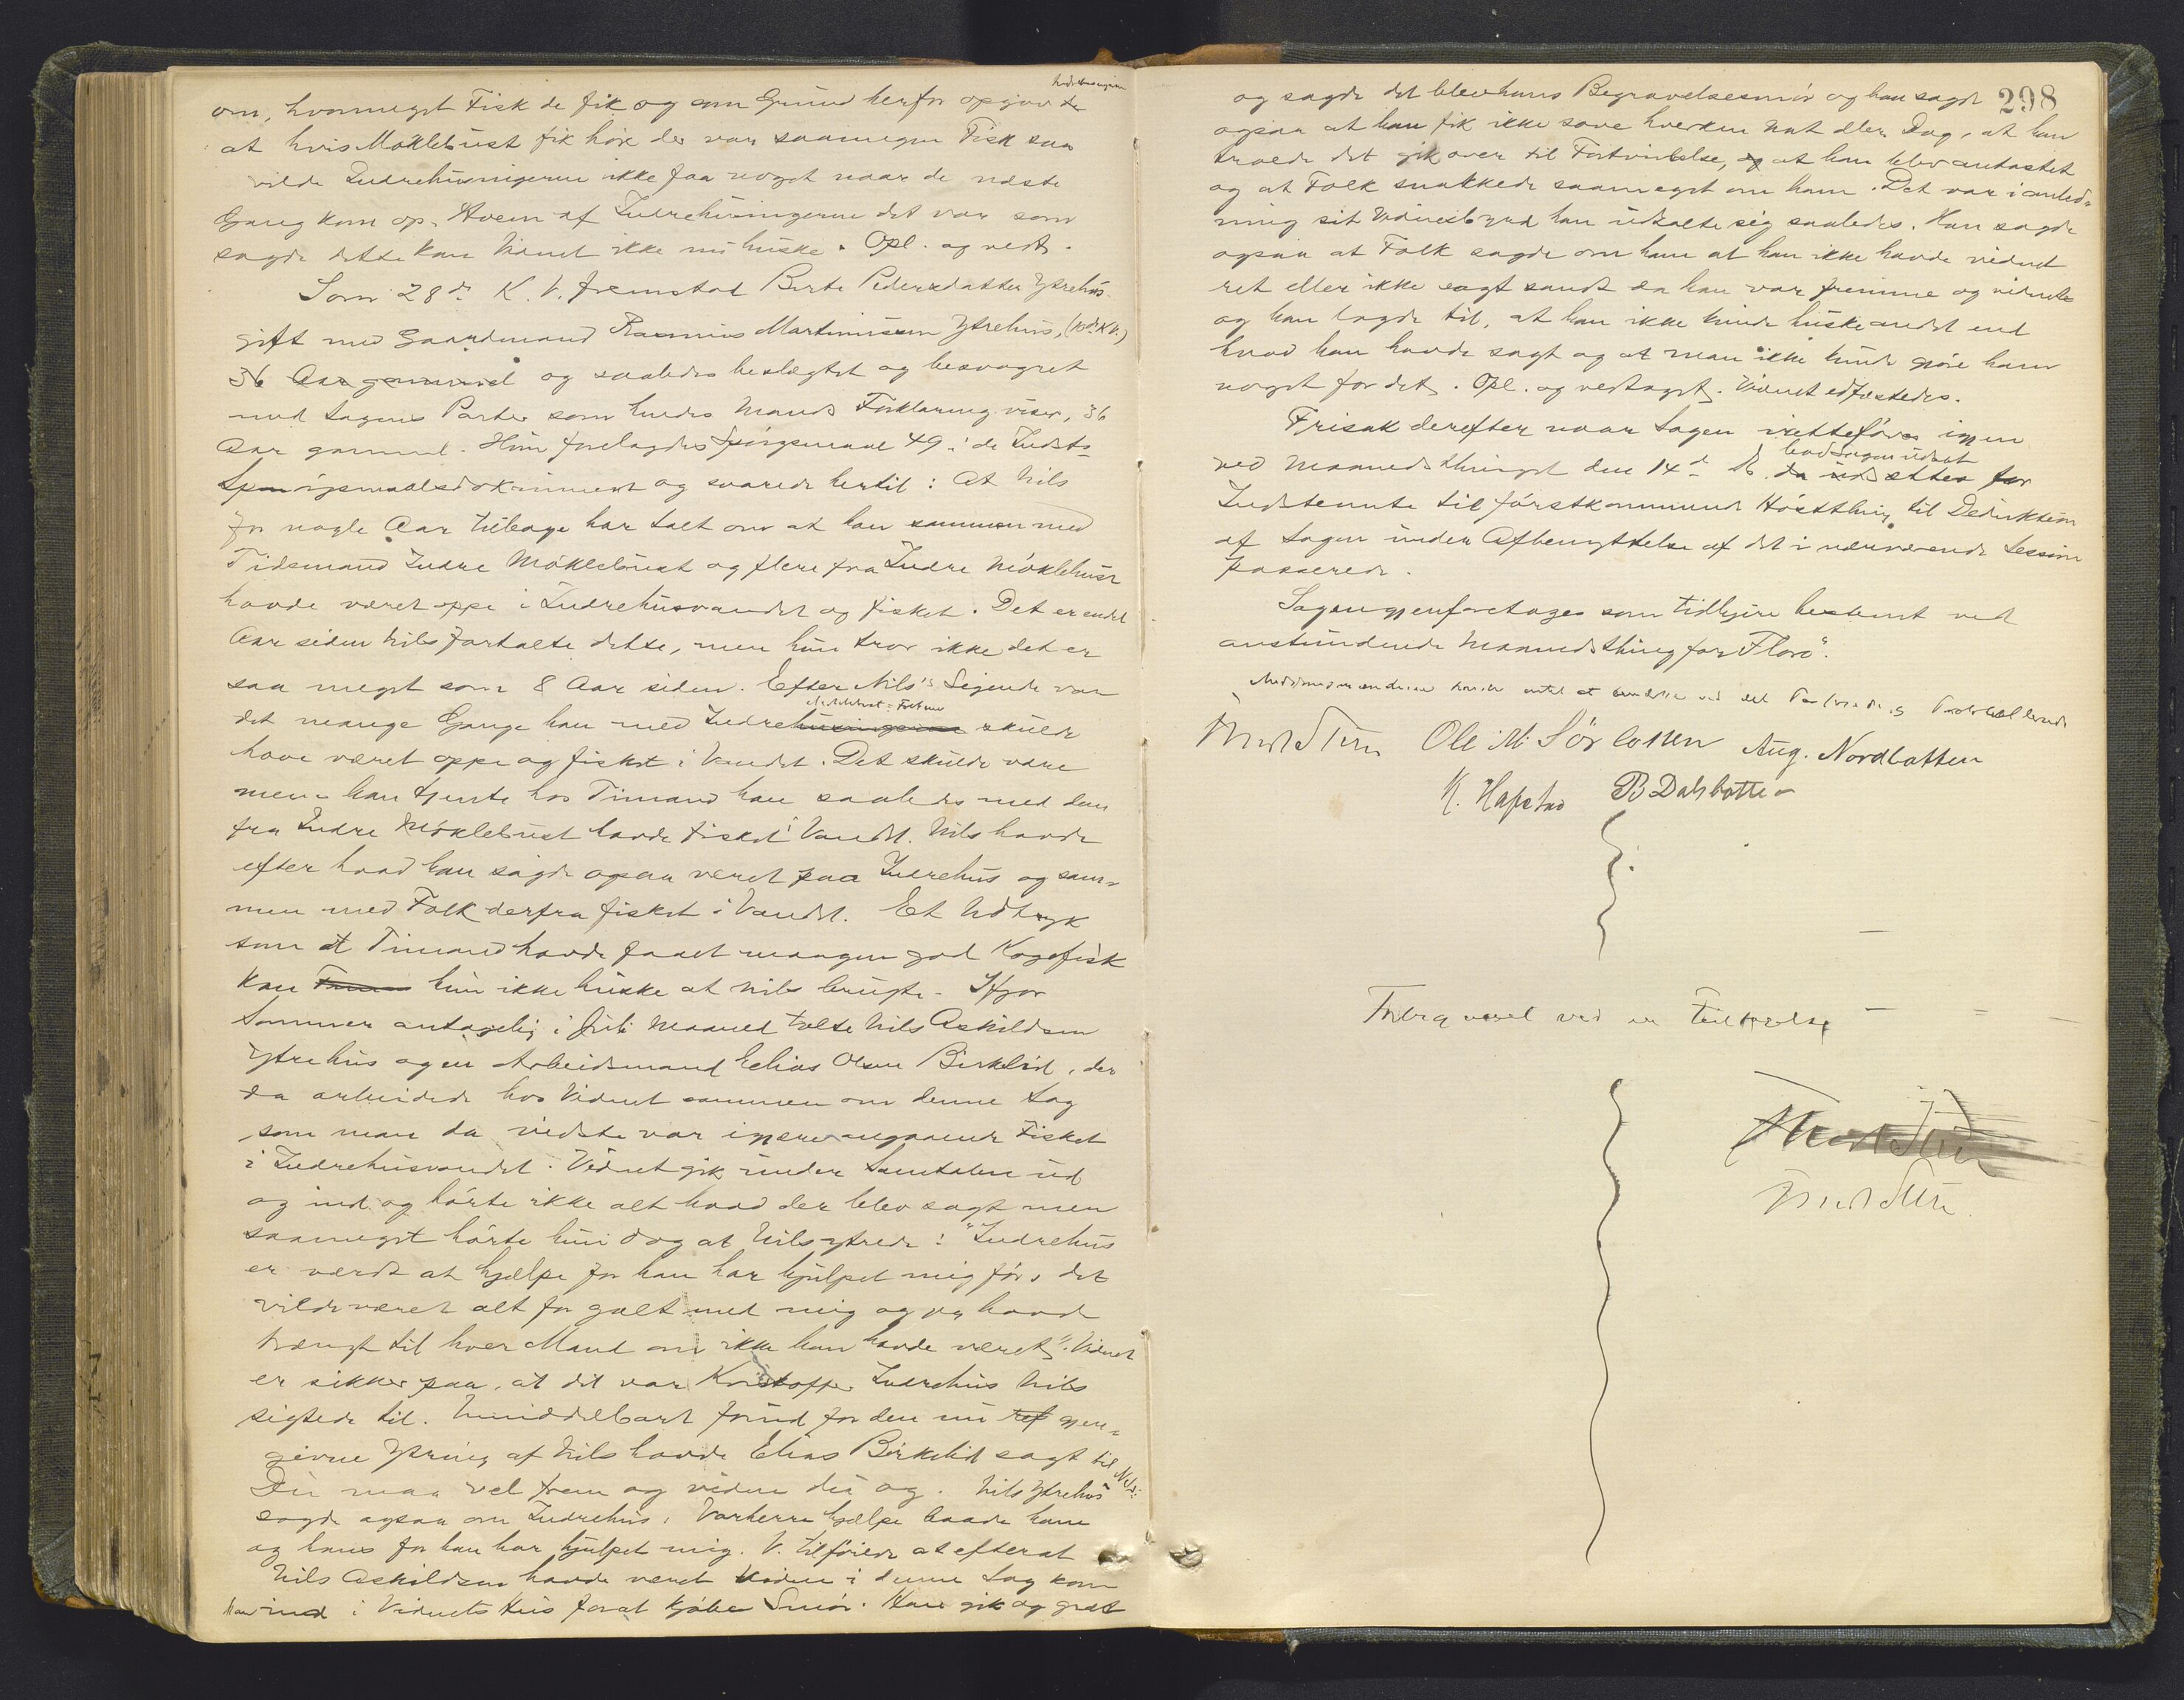 Indrehusingerne
om, hvormeget Fisk de fik og som Grund herfor opgav de
at hvis Møklebust fik høre der var saamegen Fisk saa
vilde Indrehusingerne ikke faa noget naar de næste
Gang kom op. Hvem af Indrehusingerne det var som
sagde dette kan Vidnet ikke nu huske. Opl. og vedt.
Som 28de K. V. fremstod Berte Pedersdatter Ytrehus
gift med Gaardmand Rasmus Martinussen Ytrehus, (10de K.V.)
36 Aar gammel og saaledes beslægtet og besvogret
med Sagens Parter som hendes Mands Forklaring viser, 36
Aar gammel. Hun forelagdes Spørgsmaal 49 i de Indst.
Spørgsmaalsdokument og svarede hertil: At Nils
for nogle Aar tilbage har talt om at han sammen med
Tidemand Indre Møklebust og flere fra Indre Møklebust
havde været oppe i Indrehusvandet og fisket. Det er endel
Aar siden Nils fortalte dette, men hun tror ikke det er
saa meget som 8 Aar siden. Efter Nils's Sigende var
Møklebust-Folkene
det mange Gange han med Indrehusingerne skulde
have været oppe og fisket i Vandet. Det skulde være
mens han tjente hos Timand han saaledes med dem
fra Indre Møklebust havde fisket i Vandet. Nils havde
efter hvad han sagde ogsaa været paa Indrehus og sam-
men med Folk derfra fisket i Vandet. Et Udtryk
som at Timand havde faaet mangen god Kogefisk
kan hun ikke huske at Nils brugte. Ifjor
Sommer antagelig i Juli Maaned talte Nils Askildsen
Ytrehus og en Arbeidsmand Elias Olsen Birkelid, der
da arbeidede hos Vidnet sammen om denne Sag
som man da vidste var igjære angaaende Fisket
i Indrehusvandet. Vidnet gik under Samtalen ud
og ind og hørte ikke alt hvad der blev sagt men
saameget hørte hun dog at Nils ytrede: "Indrehus
er værdt at hjælpe for han har hjulpet mig før, det
vilde været alt for galt med mig og jeg havde
trængt til hver Mand om ikke han havde været". Vidnet
er sikker paa, at det var Kristoffer Indrehus Nils
sigtede til. Umiddelbart forud for den nu ref gjen-
givne Ytring af Nils havde Elias Birkelid sagt til Nils:
Du maa vel frem og vidne du og. Nils Ytrehus
sagde ogsaa om Indrehus, Vorherre hjælpe baade ham
og hans for han har hjulpet mig. V. tilføiede at efterat
Nils Askildsen havde været Vidne i denne Sag kom
han ind i Vidnets Hus forat kjøbe Smør. Han gik og græt
298
og sagde det blev hans Begravelsessmør og han sagde
ogsaa at han fik ikke sove hverken Nat eller Dag, at han
troede det gik over til Fortvivlelse, og at han blev antastet
og at Folk snakkede saameget om ham. Det var i anled-
ning sit Vidnesbyrd han udtalte sig saaledes. Han sagde
ogsaa at Folk sagde om ham at han ikke havde vidnet
ret eller ikke sagt sandt da han var fremme og vidnede
og han lagde til, at han ikke kunde huske andet end
hvad han havde sagt og at man ikke kunde gjøre ham
noget for det. Opl. og vedtaget. Vidnet edfæstedes.
Frisak derefter naar Sagen retteføres igjen
bad Sagen udsat
ved Maanedsthinget den 14de ds. da udsættes for
Indstevnte til førstkommende Høstthing til Deduktion
af Sagen under Afbenyttelse af det i nærværende Session
passerede.
Sagen gjenforetages som tidligere bestemt ved
anstundende Maanedsthing for Florø".
Meddomsmændene havde intet at bemærke ved det
Ole M. Sørbotten Aug. Nordbotten
K. Hafstad B Dalsbotten